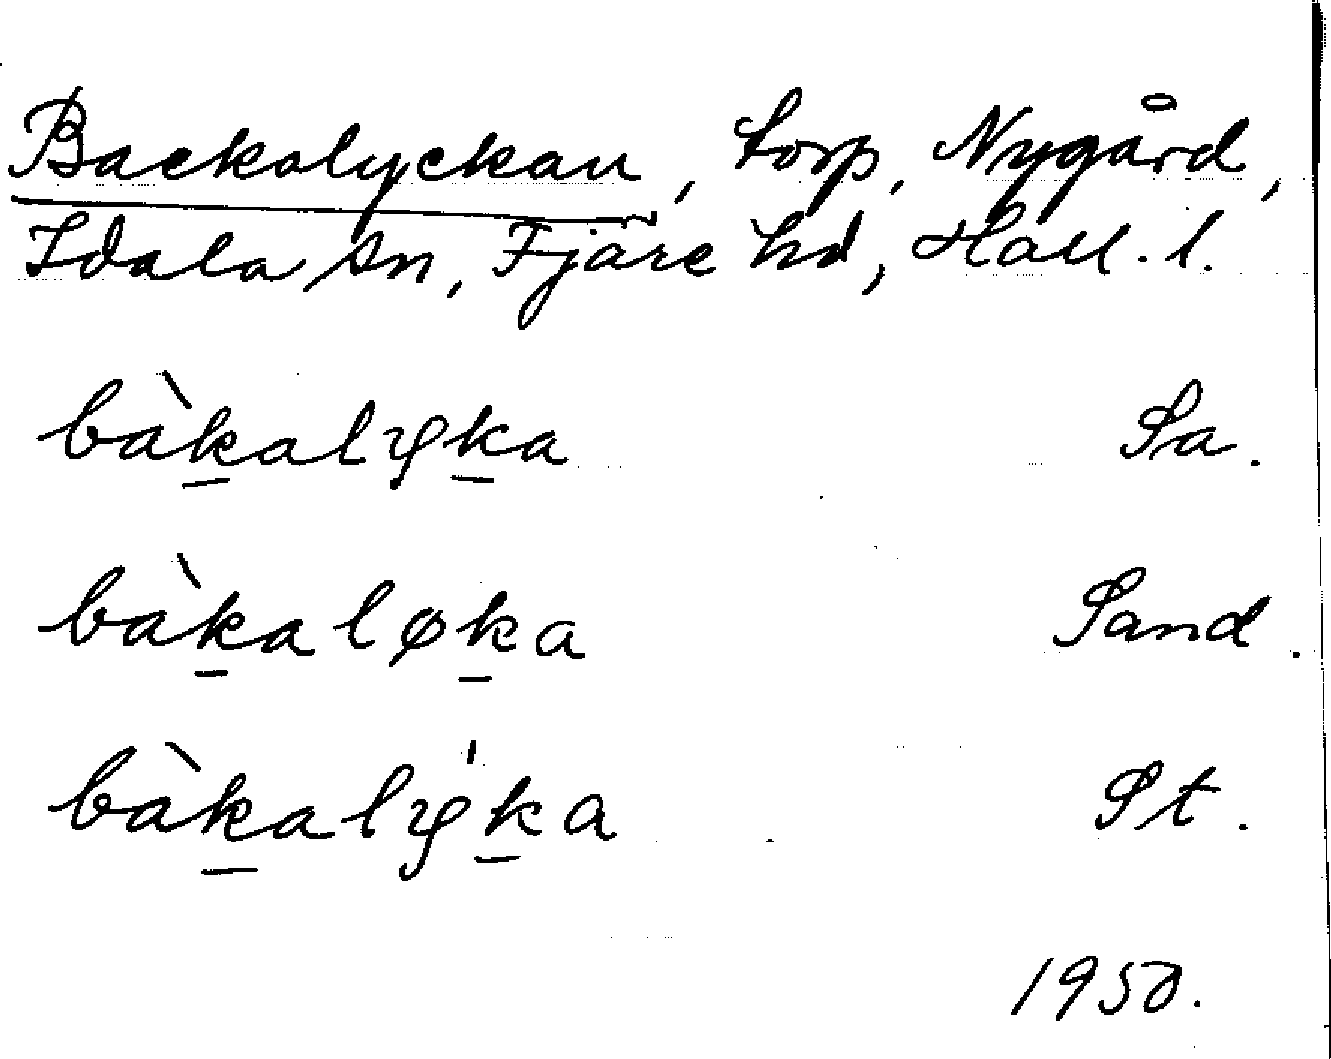 Backalyckan, torp, Nygård,
Idala sn, Fjäre hd, Hall. l.
bàk̲alyk̲a Sa.
bàk̲aløk̲a Sand.
bàk̲alýk̲a St.
1950.